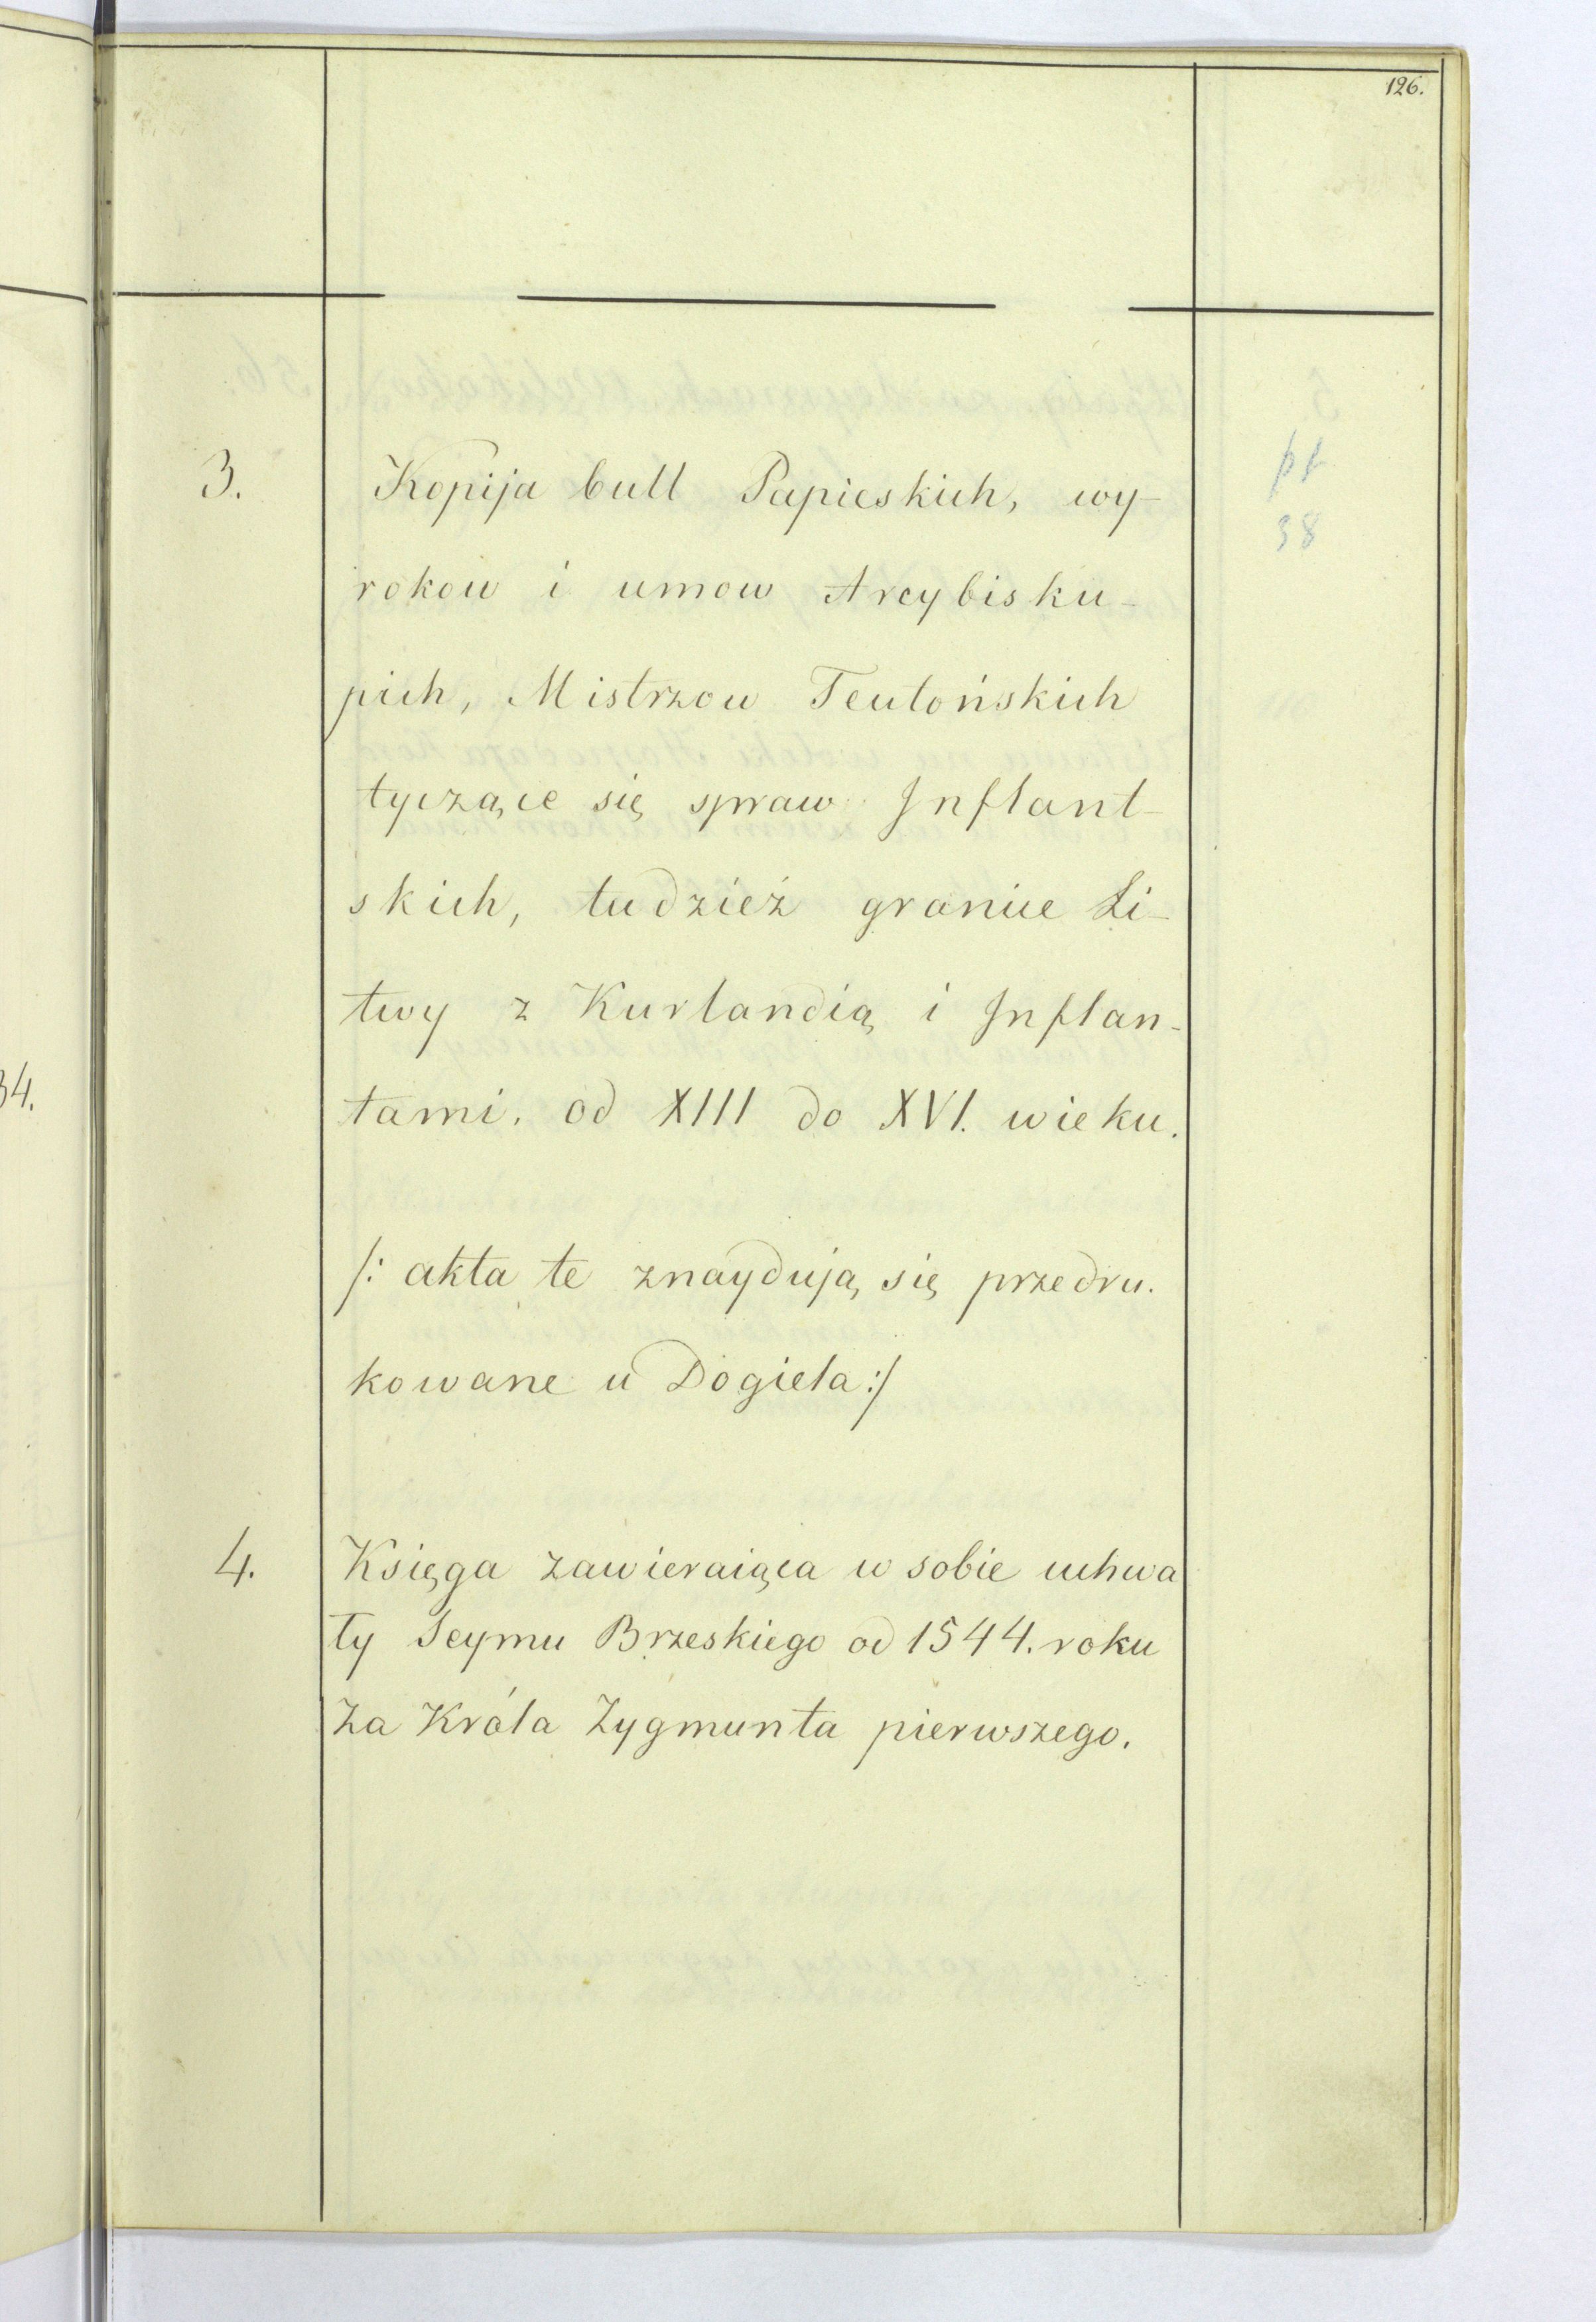 126.
3.
Kopija bull Papieskich, wy-
rokow i umow Arcybisku-
pich, Mistrzow Teutońskich
tyczące się spraw Inflant-
skich, tudzież granice Li-
twy z Kurlandią i Inflan-
tami. od XIII do XVI. wieku.
/: akta te znaydują się przedru.
kowane u Dogiela:/
38
4.
Księga zawieraiąca w sobie uchwa
ły Seymu Brzeskiego od 1544. roku
Za Króla Zygmunta pierwszego.
34.